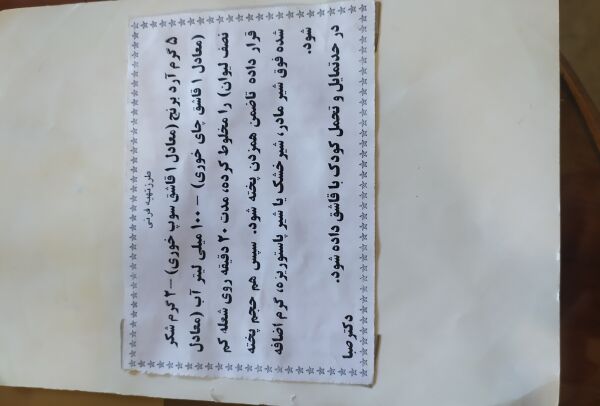 طرز تهیه فرنی
۵ گرم آرد برنج (معادل ۱ قاشق سوپ خوری) – ۲ گرم شکر
(معادل ۱ قاشق چای خوری) – ۱۰۰ میلی لیتر آب (معادل
نصف لیوان) را مخلوط کرده، مدت ۲۰ دقیقه روی شعله کم
قرار داده تاضمن همزدن پخته شود. سپس هم حجم پخته
شده فوق شیر مادر، شیرخشک یا شیر پاستوریزه، گرم اضافه
شود.
در حدتمایل و تحمل کودک با قاشق داده شود.
دکتر صبا